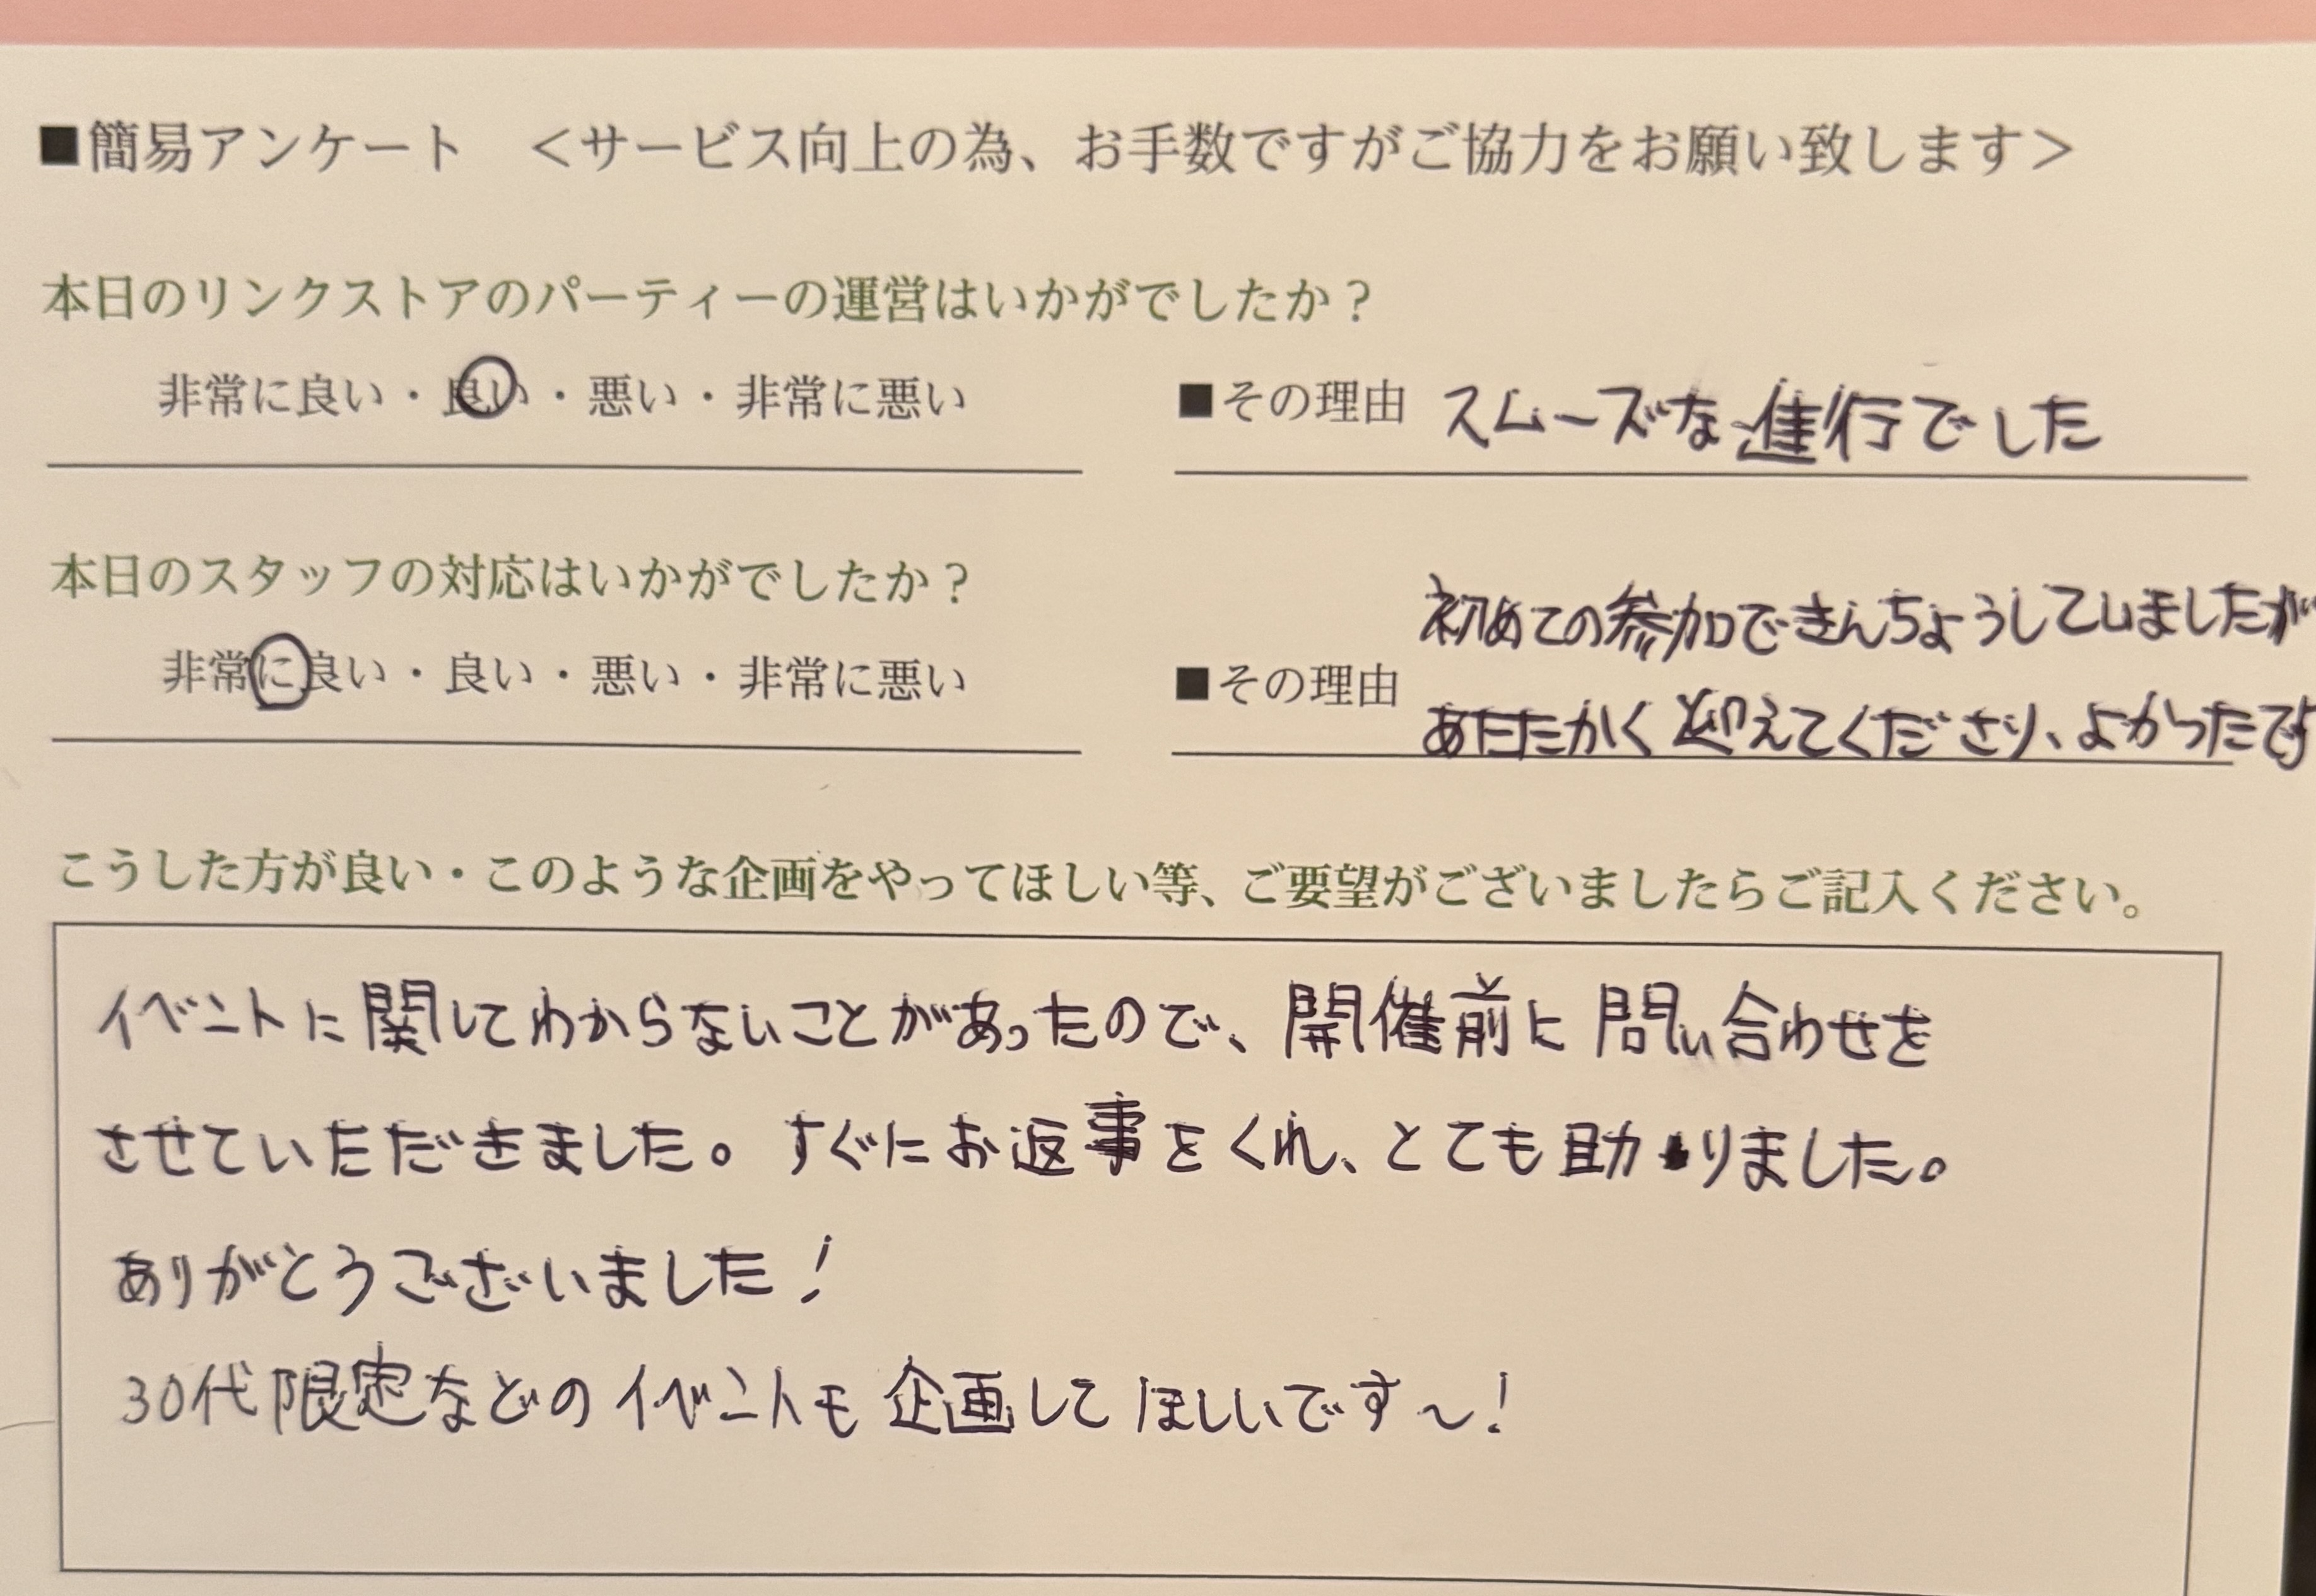 ■簡易アンケート　＜サービス向上の為、お手数ですがご協力をお願い致します＞
本日のリンクストアのパーティーの運営はいかがでしたか？
非常に良い・良い・悪い・非常に悪い
■その理由 スムーズな進行でした
本日のスタッフの対応はいかがでしたか？
非常に良い・良い・悪い・非常に悪い
■その理由
初めての参加できんちょうしていましたが
あたたかく迎えてくださり、よかったです
こうした方が良い・このような企画をやってほしい等、ご要望がございましたらご記入ください。
イベントに関してわからないことがあったので、開催前に問い合わせを
させていただきました。すぐにお返事をくれ、とても助りました。
ありがとうございました！
30代限定などのイベントも企画してほしいです～！